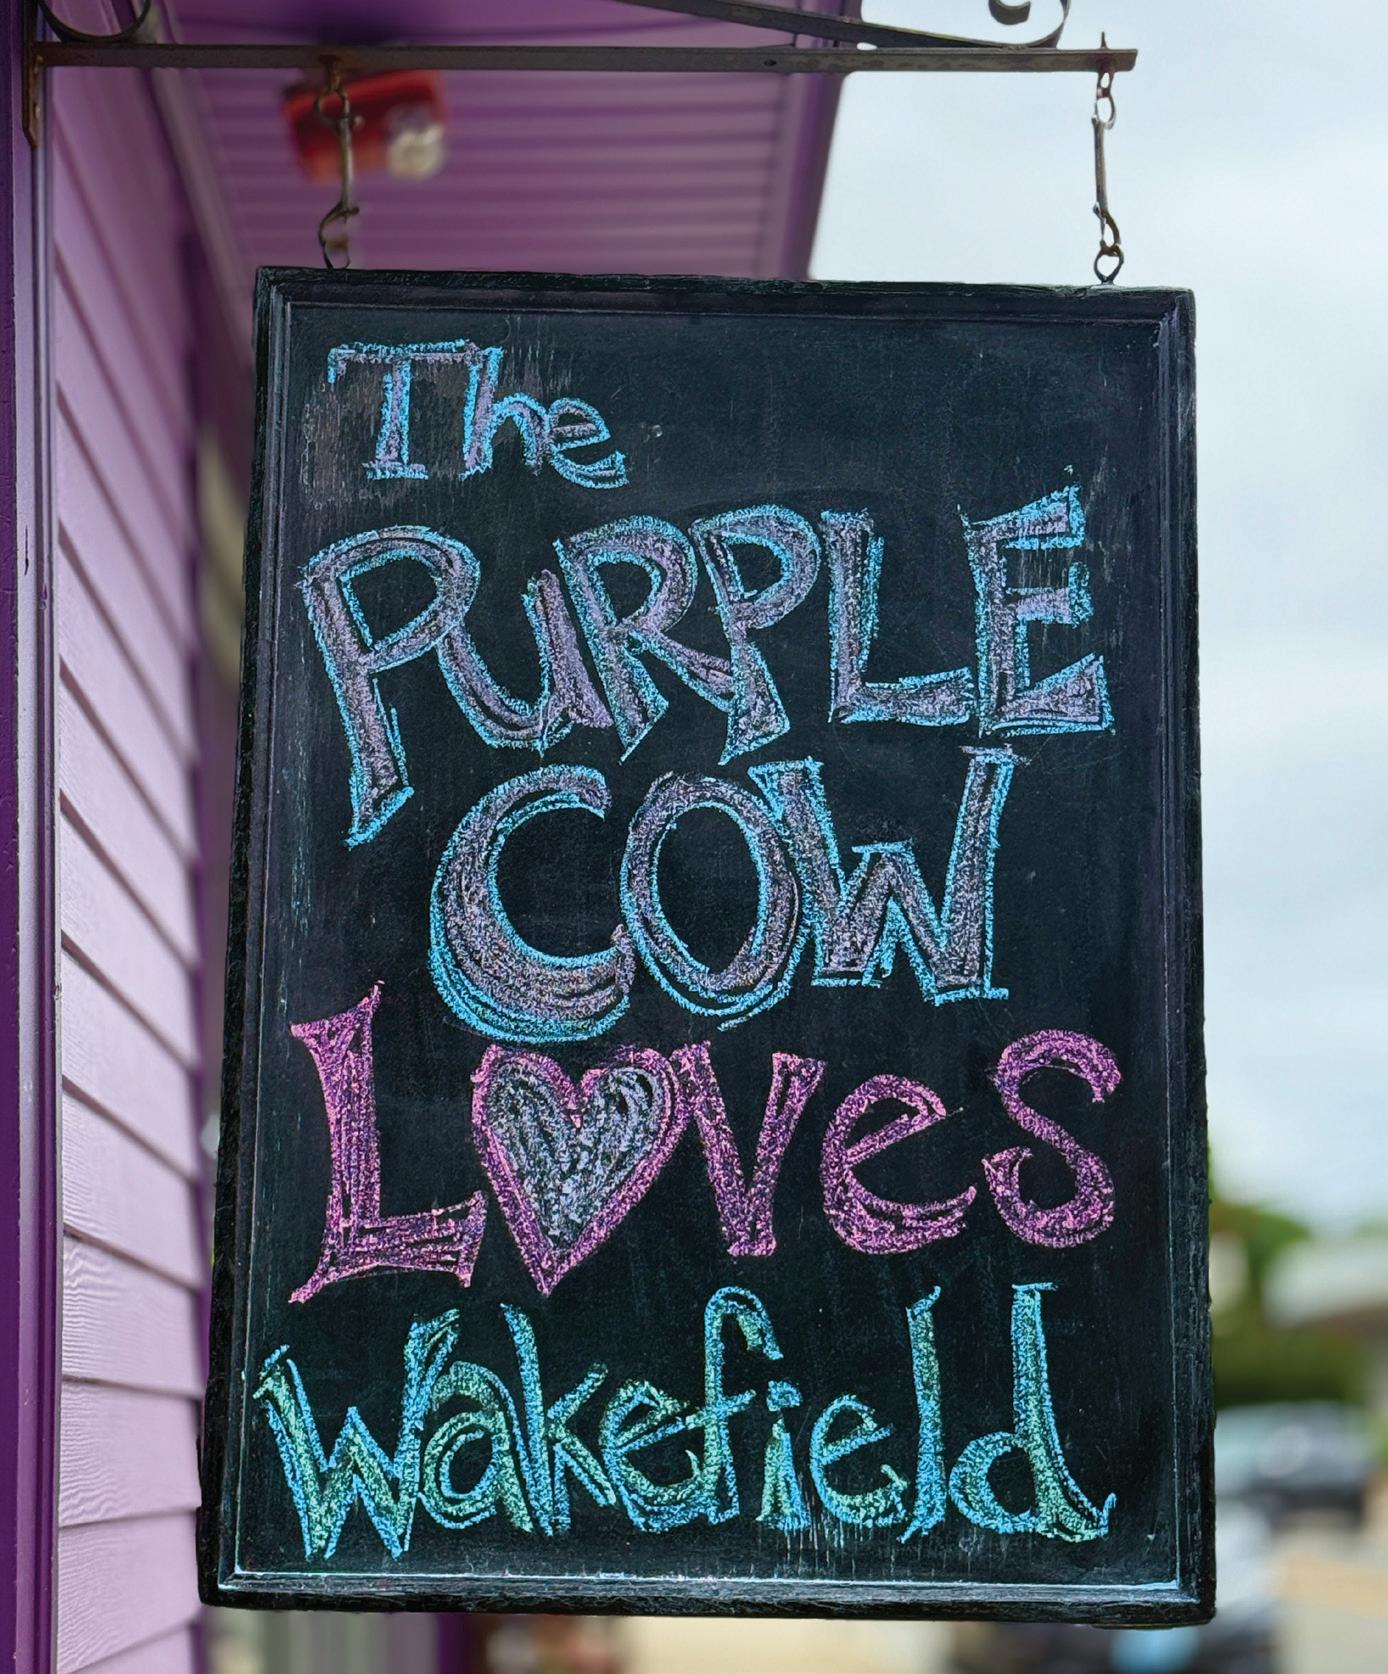 The
PURPLE
COW
L♥ves
Wakefield